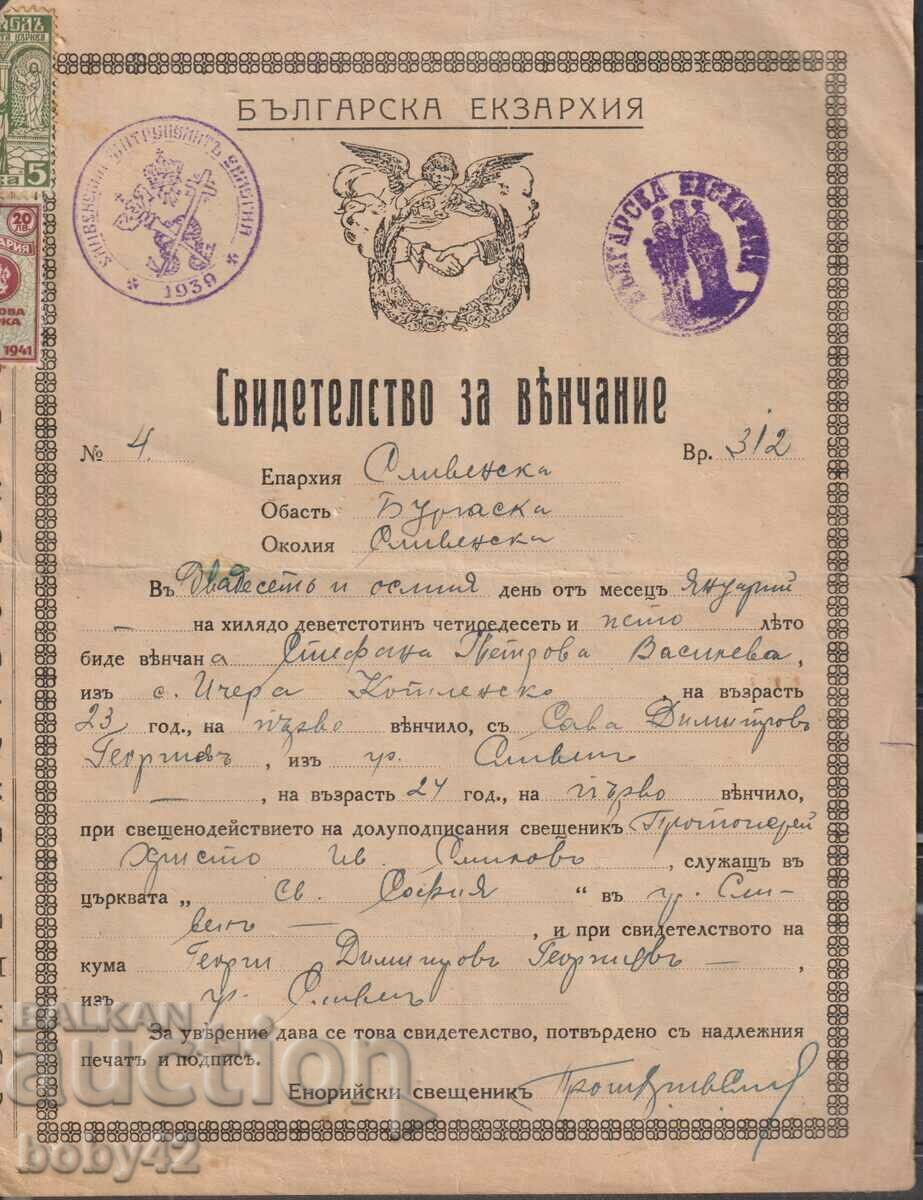 5
20
ЛВ.
1941
БЪЛГАРСКА ЕКЗАРХИЯ
1938
БЪЛГАРСКА ЕКЗАРХИЯ
Свидетелство за вѣнчание
№ 4. Вр. 312
Епархия Сливенска
Обасть Бургаска
Околия Сливенска
Въ Двадесеть и осмия день отъ месецъ Януарий
— на хилядо деветстотин четиредесеть и пето лѣто
биде вѣнчана Стефана Петрова Василева,
изъ с. Ичера Котленско, на възрасть
23 год., на първо вѣнчило, съ Сава Димитровъ
Георгиевъ, изъ гр. Сливенъ
—, на възрасть 24 год., на първо вѣнчило,
при свещенодействието на долуподписания свещеникъ Протоиерей
Христо Ив., служащъ въ
църквата „ Св. София “ въ гр. Сли-
венъ —, и при свидетелството на
кума Георги Димитровъ Георгиевъ —,
изъ гр. Сливенъ
За увѣрение дава се това свидетелство, потвърдено съ надлежния
печатъ и подпись.
Енорийски свещеникъ
BALKAN
auction
boby42